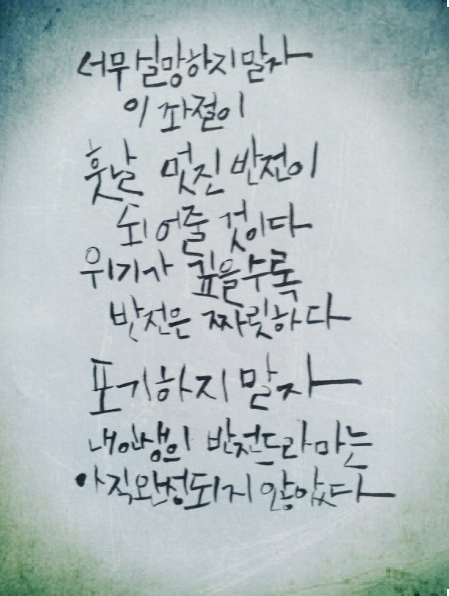 너무 실망하지 말자
이 좌절이
훗날 멋진 반전이
되어줄 것이다
위기가 깊을수록
반전은 짜릿하다
포기하지 말자
내인생의 반전드라마는
아직완성되지 않았다